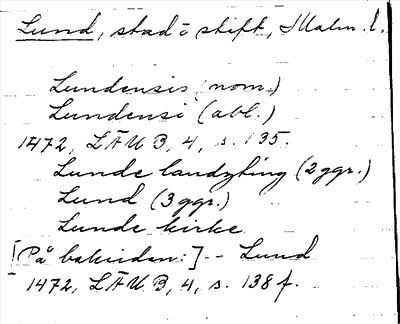 Lund, stad o shift, Malm. l.
Lundensis (nom.)
Lundensi (abl.)
1472, LÄUB, 4, s. 135.
Lunde landzting (2 ggr.)
Lund (3 ggr.)
Lunde kirke
[På baksidan:] -- Lund
1472, LÄUB, 4, s. 138 f.